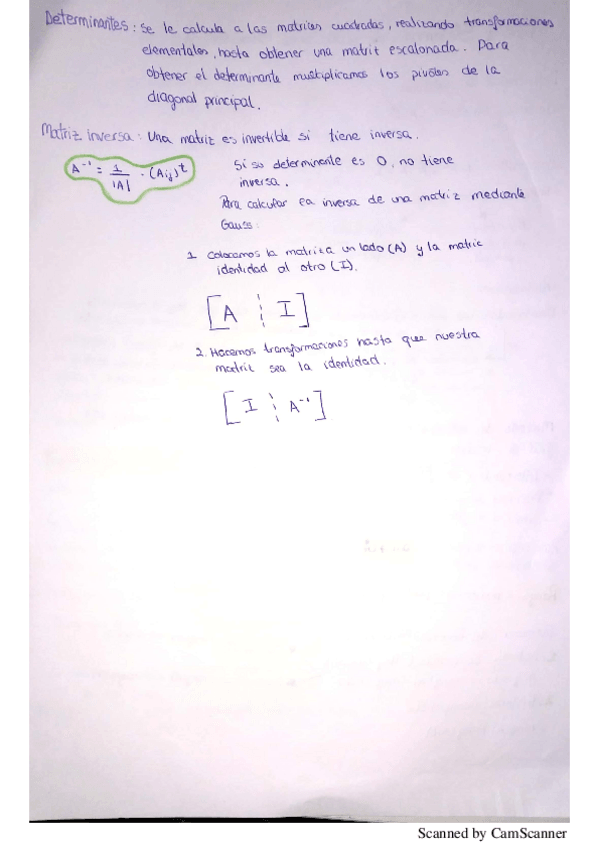 Determinantes: Se le calcula a las matrices cuadradas, realizando transformaciones
elementales, hasta obtener una matriz escalonada. Para
obtener el determinante multiplicamos los pivotes de la
diagonal principal.
Matriz inversa: Una matriz es invertible si tiene inversa.
A⁻¹ = 1/|A| · (Aij)t
Si su determinante es 0, no tiene
inversa.
Para calcular la inversa de una matriz mediante
Gauss:
1. Colocamos la matriz a un lado (A) y la matriz
identidad al otro (I).
[A ¦ I]
2. Hacemos transformaciones hasta que nuestra
matriz sea la identidad.
[I ¦ A⁻¹]
Scanned by CamScanner